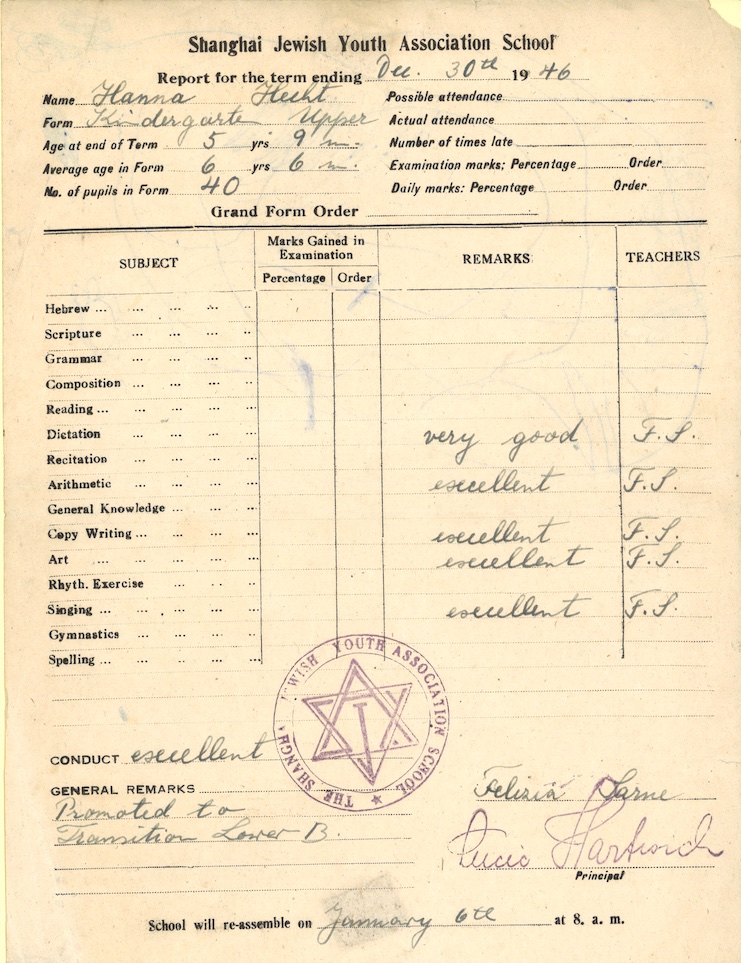 Shanghai Jewish Youth Association School
Report for the term ending Dec. 30th 1946
Name Hanna Hecht
Form Kindergarten Upper
Age at end of Term 5 yrs 9 m.
Average age in Form 6 yrs 6 m.
No. of pupils in Form 40
Possible attendance
Actual attendance
Number of times late
Examination marks: Percentage Order
Daily marks: Percentage Order
Grand Form Order
SUBJECT Marks Gained in Examination REMARKS TEACHERS
Percentage Order
Hebrew
Scripture
Grammar
Composition
Reading
Dictation very good F.S.
Recitation
Arithmetic excellent F.S.
General Knowledge
Copy Writing excellent F.S.
Art excellent F.S.
Rhyth. Exercise
Singing excellent F.S.
Gymnastics
Spelling
THE SHANGHAI JEWISH YOUTH ASSOCIATION SCHOOL
CONDUCT excellent
GENERAL REMARKS
Promoted to
Transition Lower B.
Lucie Hartwich
Principal
School will re-assemble on January 6th at 8. a. m.